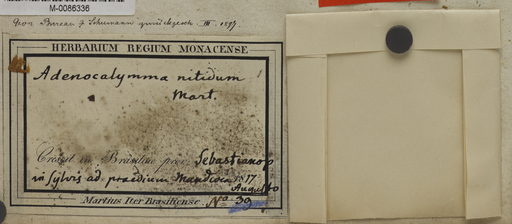 M-0086336
Bureau & Schumann III. 1897
HERBARIUM REGIUM MONACENSE
Adenocalymma nitidum
Mart.
Crescit in Brasiliae prov. Sebastianop
in sylvis ad praedium Mandioca 1817
Augusto
Martius Iter Brasiliense. No 39